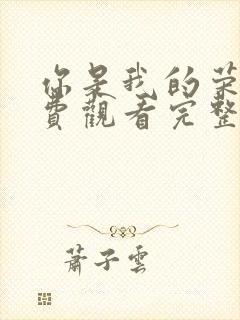 你是我的荣
費觀看完整
蕭子雲